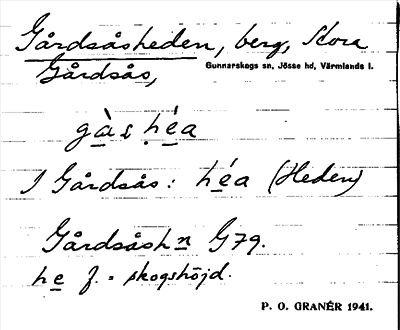 Gårdsåsheden, berg, Stora
Gårdsås,
Gunnarskogs sn, Jösse hd, Värmlands l.
gàs héa
I Gårdsås: héa (Heden)
Gårdsåshn G79.
he f. = skogshöjd.
P. O. GRANÉR 1941.